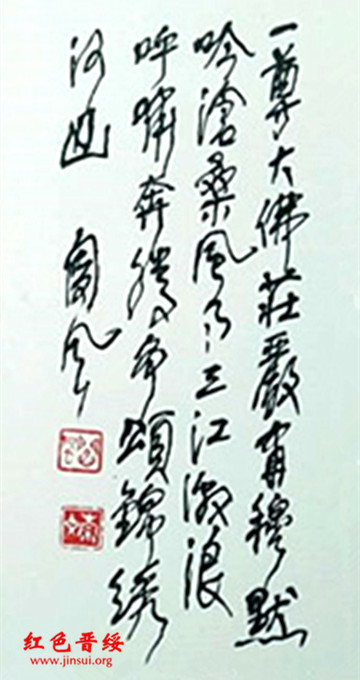 一尊大佛莊嚴肅穆默
吟滄桑風雨三江激浪
呼嘯奔騰争頌錦綉
河山
红色晋绥
www.jinsui.org